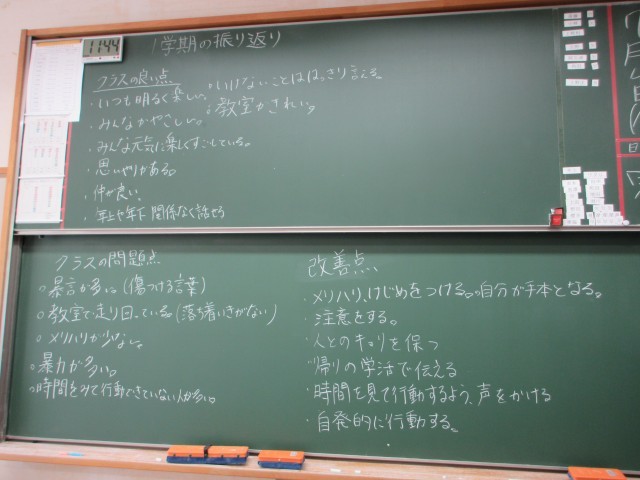 11:44
1学期の振り返り
クラスの良い点
・いつも明るく楽しい。
・いけないことははっきり言える。
・みんなやさしい。
・教室がきれい。
・みんな元気に楽しくすごしている。
・思いやりがある。
・仲が良い。
・年上や年下関係なく話せる
クラスの問題点
○暴言が多い。(傷つける言葉)
○教室で走り回っている(落ち着いきがない)
○メリハリが少ない。
○暴力が多い。
○時間をみて行動できていない人が多い。
改善点
・メリハリ、けじめをつける。○自分が手本となる。
・注意をする。
・人とのキョリを保つ
・帰りの学活で伝える
・時間を見て行動するよう、声をかける
・自発的に行動する。
日